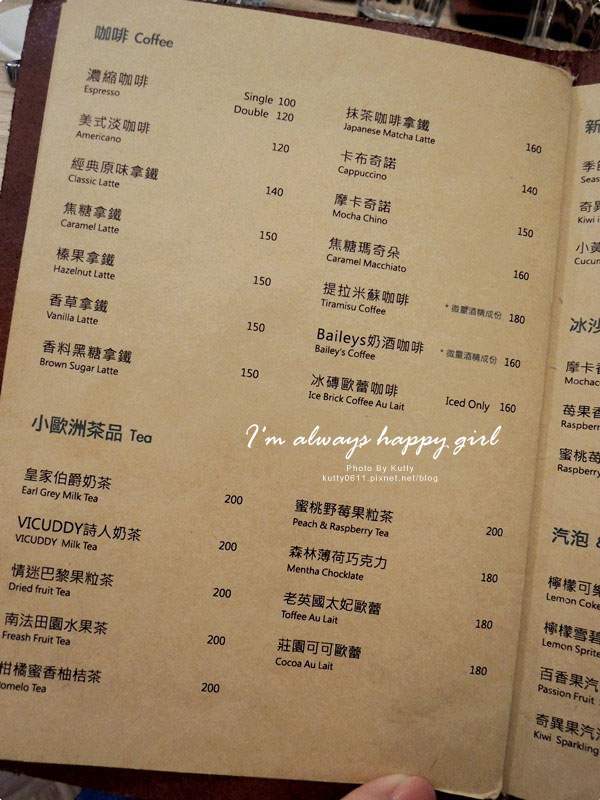 咖啡 Coffee
濃縮咖啡
Espresso
Single 100
Double 120
美式淡咖啡
Americano
120
經典原味拿鐵
Classic Latte
140
焦糖拿鐵
Caramel Latte
150
榛果拿鐵
Hazelnut Latte
150
香草拿鐵
Vanilla Latte
150
香料黑糖拿鐵
Brown Sugar Latte
150
抹茶咖啡拿鐵
Japanese Matcha Latte
160
卡布奇諾
Cappuccino
140
摩卡奇諾
Mocha Chino
150
焦糖瑪奇朵
Caramel Macchiato
160
提拉米蘇咖啡
Tiramisu Coffee
*微量酒精成份 180
Baileys奶酒咖啡
Bailey's Coffee
*微量酒精成份 160
冰磚歐蕾咖啡
Ice Brick Coffee Au Lait
Iced Only 160
I'm always happy girl
Photo By Kutty
kutty0611.pixnet.net/blog
小歐洲茶品 Tea
皇家伯爵奶茶
Earl Grey Milk Tea
200
VICUDDY詩人奶茶
VICUDDY Milk Tea
200
情迷巴黎果粒茶
Dried fruit Tea
200
南法田園水果茶
Freash Fruit Tea
200
柑橘蜜香柚桔茶
omelo Tea
200
蜜桃野莓果粒茶
Peach & Raspberry Tea
200
森林薄荷巧克力
Mentha Chocklate
180
老英國太妃歐蕾
Toffee Au Lait
180
莊園可可歐蕾
Cocoa Au Lait
180
新
季
Seas
奇異
Kiwi i
小黃
Cucum
冰沙
摩卡
Mochac
苺果
Raspberr
蜜桃苺
Raspberry
汽泡 &
檸檬可樂
Lemon Coke
檸檬雪碧
Lemon Sprite
百香果汽
Passion Fruit
奇異果汽
Kiwi Sparkling